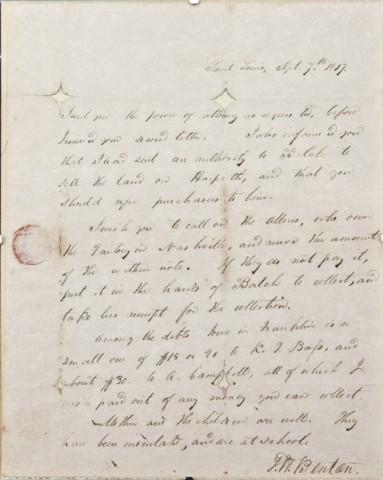 Saint Louis, Sept. 7th 1817.
I sent you the power of attorney as requested, before
I received your second letter. I also informed you
that I had sent an authority to Balch to
sell the land on Harpeth, and that you
should refer purchasers to him.
I wish you to call on the Allens, who own
the Factory in Nashville, and receive the amount
of the within note. If they do not pay it,
put it in the hands of Balch to collect, and
take his receipt for the collection.
Among the debts I owe in Franklin is a
small one of $15 or 20 to K. I. Bass, and
about $30. to A. Campbell, all of which I
wish paid out of any money you can collect.
Mother and the children are well. They
have been inoculated, and are at school.
T. H. Benton.